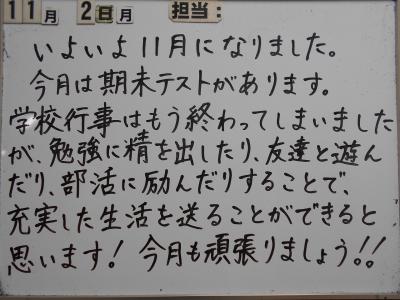 11月 2日月 担当:
いよいよ11月になりました。
今月は期末テストがあります。
学校行事はもう終わってしまいました
が、勉強に精を出したり、友達と遊ん
だり、部活に励んだりすることで、
充実した生活を送ることができると
思います! 今月も頑張りましょう!!